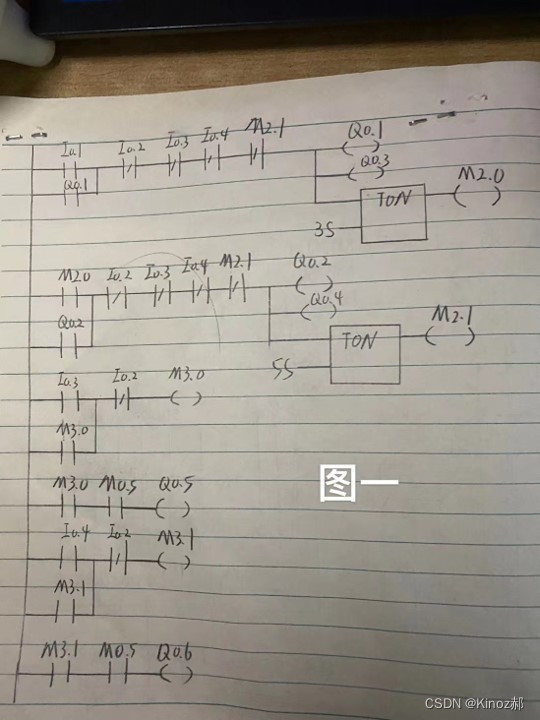 I0.1 I0.2 I0.3 I0.4 M2.1 Q0.1
Q0.1 Q0.3
TON M2.0
3S
M2.0 I0.2 I0.3 I0.4 M2.1 Q0.2
Q0.2 Q0.4
TON M2.1
5S
I0.3 I0.2 M3.0
M3.0
M3.0 M0.5 Q0.5
图一
I0.4 I0.2 M3.1
M3.1
M3.1 M0.5 Q0.6
CSDN @Kinoz郝